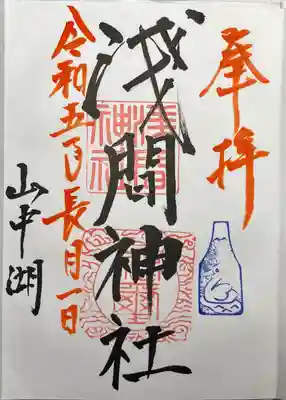 奉拝
浅間神社
山中湖
令和五年長月一日